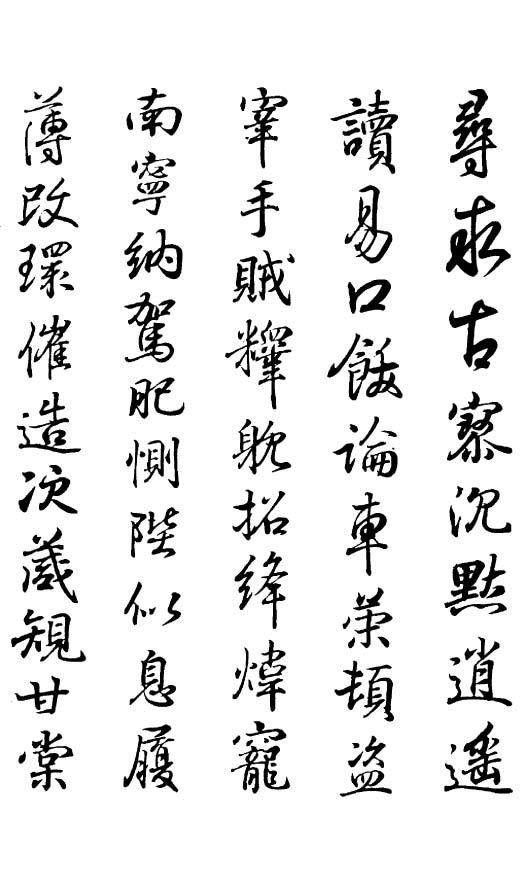 尋求古沉默逍遙
讀易口論車榮頓盜
宰手賊躭招絳煒寵
南寧納駕肥惻陛似息履
薄改環催造次規甘棠